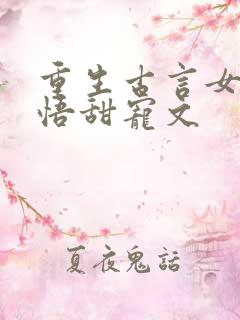 重生古言女
悟甜寵文
夏夜鬼話